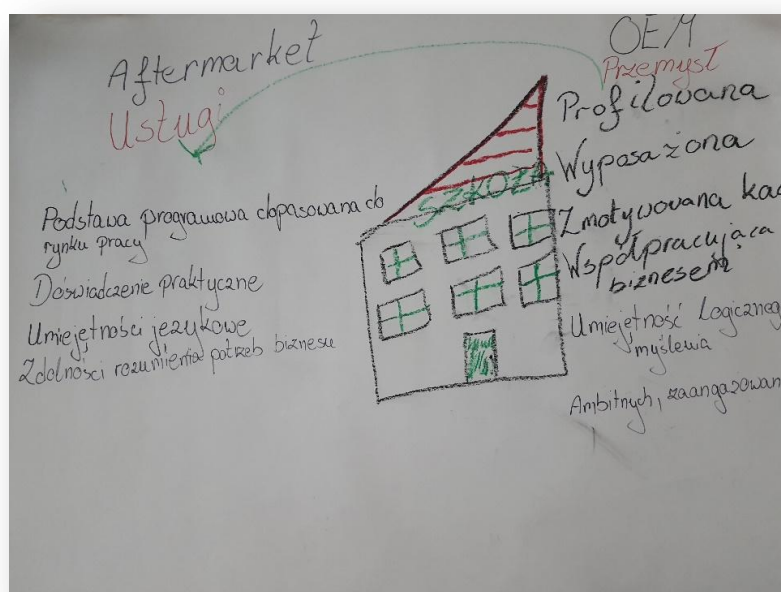 Aftermarket
Usługi
OEM
Przemysł
SZKOŁA
Podstawa programowa dopasowana do
rynku pracy
Doświadczenie praktyczne
Umiejętności językowe
Zdolności rozumienia potrzeb biznesu
Profilowana
Wyposażona
Zmotywowana ka
Współpracująca
biznesem
Umiejętność Logicznego
myślenia
Ambitnych, zaangażowan